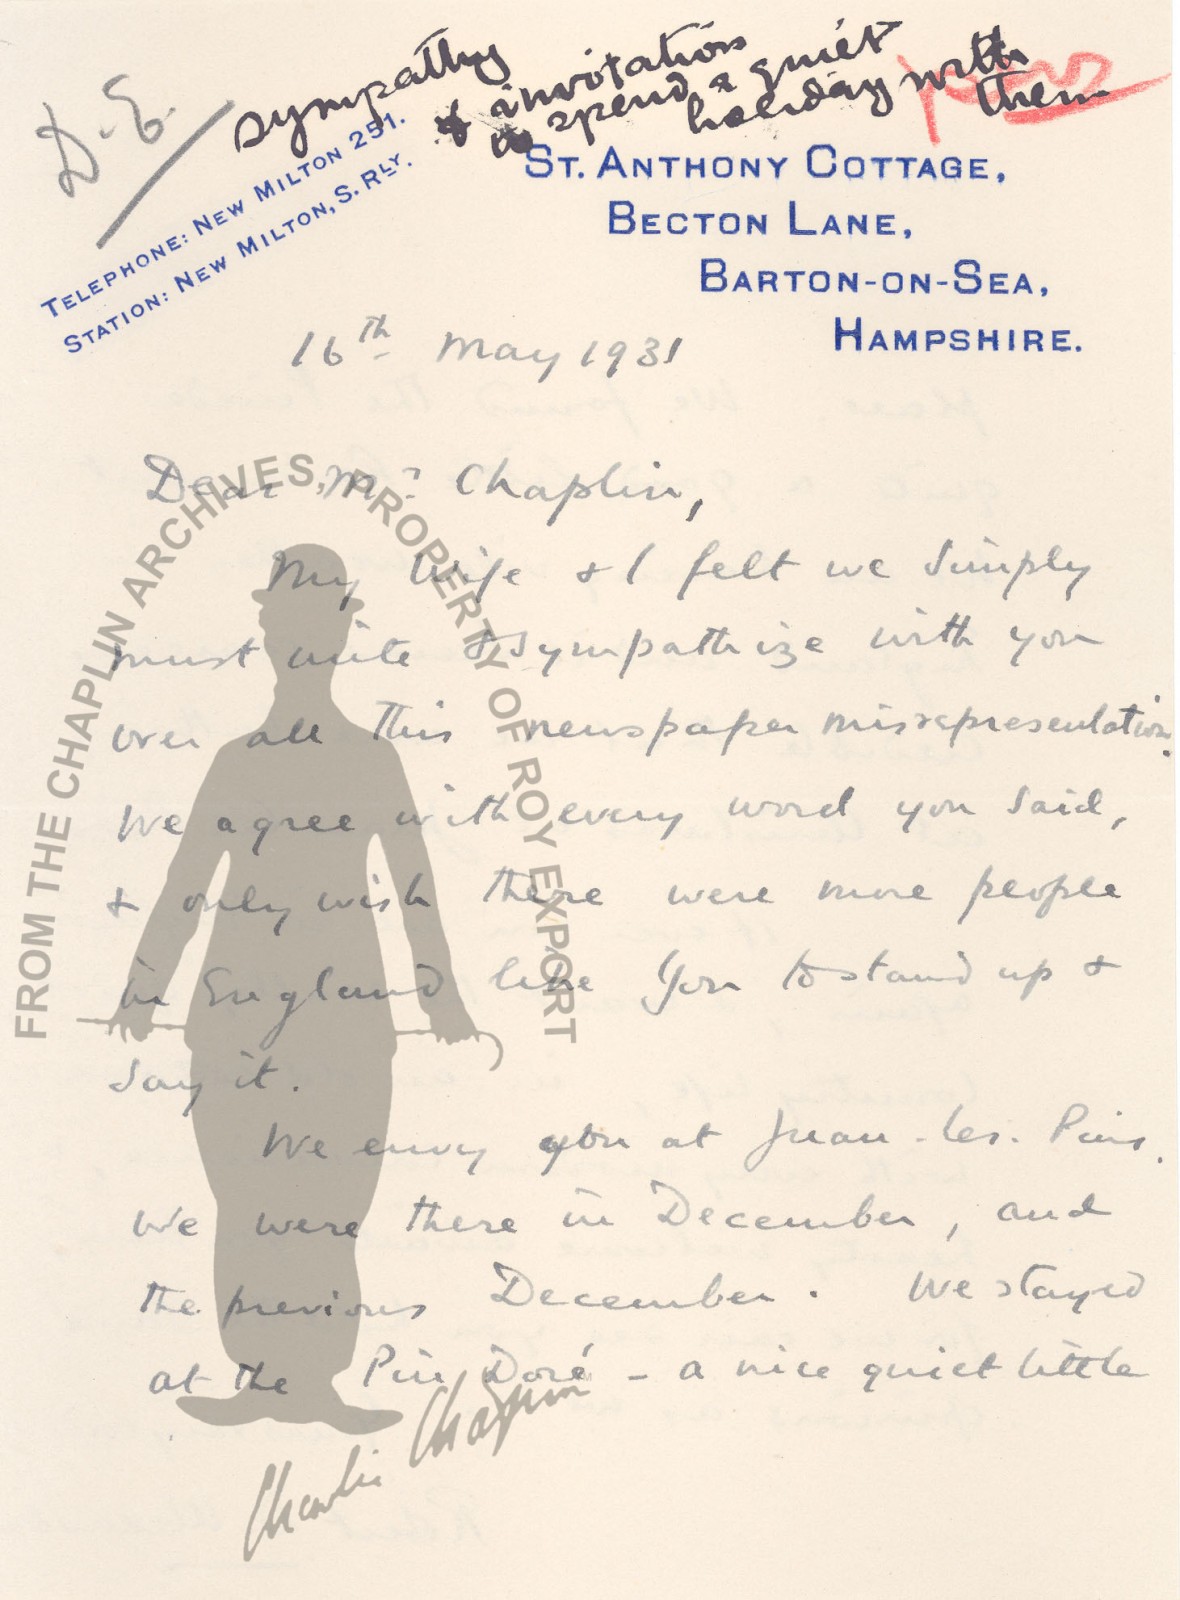 D.E.
sympathy
& invitation
to spend a quiet
holiday with
them
TELEPHONE: NEW MILTON 251.
STATION: NEW MILTON, S. RLY.
ST. ANTHONY COTTAGE,
BECTON LANE,
BARTON-ON-SEA,
HAMPSHIRE.
16th May 1931
Dear Mr Chaplin,
My Wife & I felt we simply
must write & sympathize with you
over all this newspaper misrepresentation.
We agree with every word you said,
& only wish there were more people
in England like you to stand up &
say it.
We envy you at Juan-les-Pins.
We were there in December, and
the previous December. We stayed
at the Pin Doré – a nice quiet little
FROM THE CHAPLIN ARCHIVES, PROPERTY OF ROY EXPORT
Charlie Chaplin